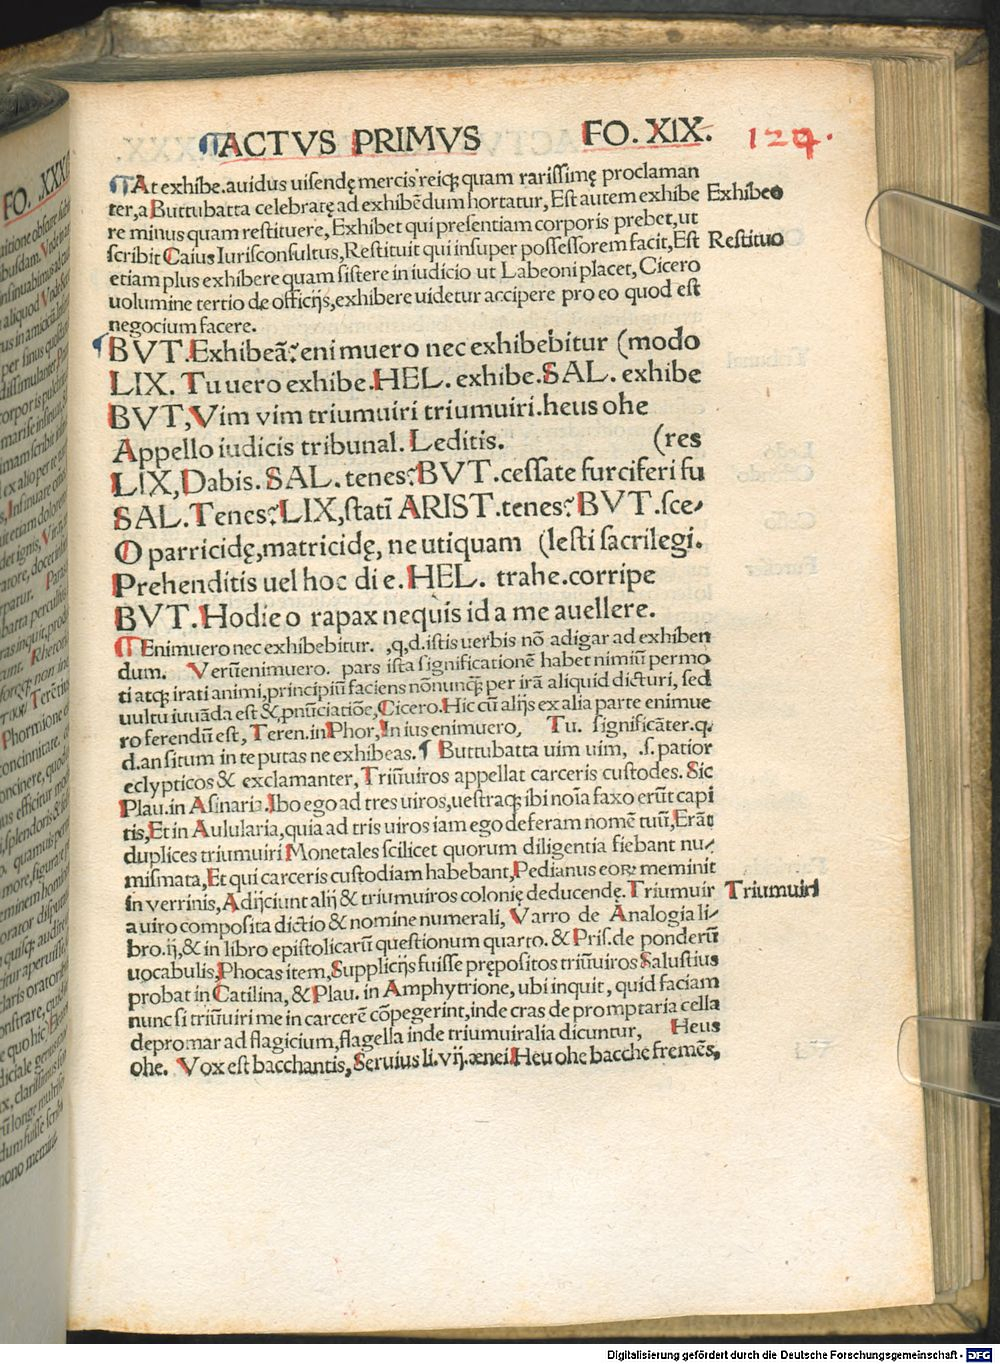 ¶ACTVS PRIMVS FO. XIX. 124.
¶At exhibe.auidus uisendę mercis reiq; quam rarissimę proclaman
ter,a Buttubatta celebratę ad exhibēdum hortatur, Est autem exhibe Exhibeo
re minus quam restituere, Exhibet qui presentiam corporis prebet,ut
scribit Caius Iurisconsultus,Restituit qui insuper possessorem facit,Est Restituo
etiam plus exhibere quam sistere in iudicio ut Labeoni placet, Cicero
uolumine tertio de officijs,exhibere uidetur accipere pro eo quod est
negocium facere.
¶BVT.Exhibeā? enimuero nec exhibebitur (modo
LIX. Tu uero exhibe.HEL. exhibe.SAL. exhibe
BVT,Vim vim triumuiri triumuiri.heus ohe
Appello iudicis tribunal. Leditis. (res
LIX,Dabis. SAL. tenes? BVT.cessate furciferi fu
SAL.Tenes? LIX,statī ARIST.tenes? BVT.sce-
O parricidę,matricidę, ne utiquam (lesti sacrilegi.
Prehenditis uel hoc die.HEL. trahe.corripe
BVT.Hodie o rapax nequis id a me auellere.
¶Enimuero nec exhibebitur. ,q,d.istis uerbis nō adigar ad exhiben
dum. Verūenimuero. pars ista significationē habet nimiū permo
ti atq; irati animi,principiū faciens nōnunq; per irā aliquid dicturi, sed
uultu iuuāda est &,pnūciatiōe,Cicero.Hic cū alijs ex alia parte enimue
ro ferendū est, Teren.in Phor,In ius enimuero, Tu. significāter.q.
d.an situm in te putas ne exhibeas.¶ Buttubatta uim uim, .s.patior
eclypticos & exclamanter,Triūuiros appellat carceris custodes. Sic
Plau.in Asinaria.Ibo ego ad tres uiros,uestraq; ibi noīa faxo erūt capi
tis,Et in Aulularia,quia ad tris uiros iam ego deferam nomē tuū,Erāt
duplices triumuiri Monetales scilicet quorum diligentia fiebant nu-
mismata,Et qui carceris custodiam habebant,Pedianus eorꝝ meminit
in verrinis,Adijciunt alij & triumuiros colonię deducendę.Triumuir Triumuiri
a uiro composita dictio & nomine numerali, Varro de Analogia li-
bro.ij,& in libro epistolicarū questionum quarto.& Pris.de ponderū
uocabulis,Phocas item,Supplicijs fuisse prępositos triūuiros Salustius
probat in Catilina, & Plau. in Amphytrione, ubi inquit, quid faciam
nunc si triūuiri me in carcerē cōpegerint,inde cras de promptaria cella
depromar ad flagicium,flagella inde triumuiralia dicuntur, Heus
ohe. Vox est bacchantis,Seruius li.vij.ænei.Heu ohe bacche fremēs,
FO. XXXI
Digitalisierung gefördert durch die Deutsche Forschungsgemeinschaft - DFG